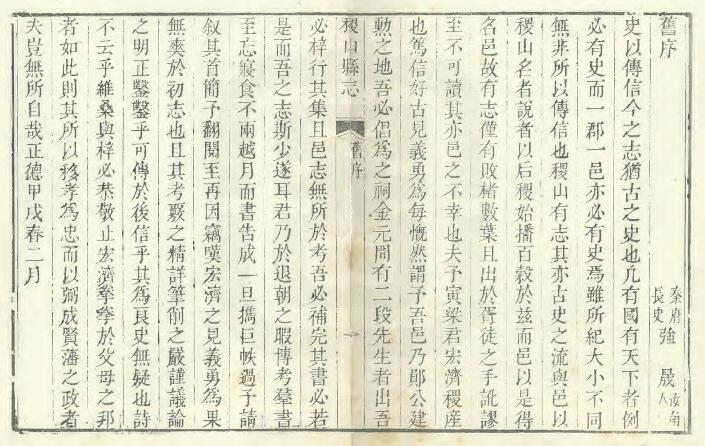 舊序
秦府長史強晟汝南人
史以傳信今之志猶古之史也凡有國有天下者例
必有史而一郡一邑亦必有史焉雖所紀大小不同
無非所以傳信也稷山有志其亦古史之流與邑以
稷山名者說者以后稷始播百穀於茲而邑以是得
名邑故有志僅有敗楮數葉且出於胥徒之手訛謬
至不可讀其亦邑之不幸也夫予寅梁君宏濟稷產
也篤信好古見義勇為每慨然謂予吾邑乃鄖公建
勲之地吾必倡為之祠金元間有二段先生者出吾
稷山縣志
舊序
必梓行其集且邑志無所於考吾必補完其書必若
是而吾之志斯少遂耳君乃於退朝之暇博考羣書
至忘寢食不兩越月而書告成一旦攜巨帙過予請
敘其首簡予翻閱至再因竊嘆宏濟之見義勇為果
無爽於初志也且其考覈之精詳筆削之嚴謹議論
之明正鑿鑿乎可傳於後信乎其為良史無疑也詩
不云乎維桑與梓必恭敬止宏濟拳拳於父母之邦
者如此則其所以移孝為忠而以弼成賢藩之政者
夫豈無所自哉正德甲戌春二月